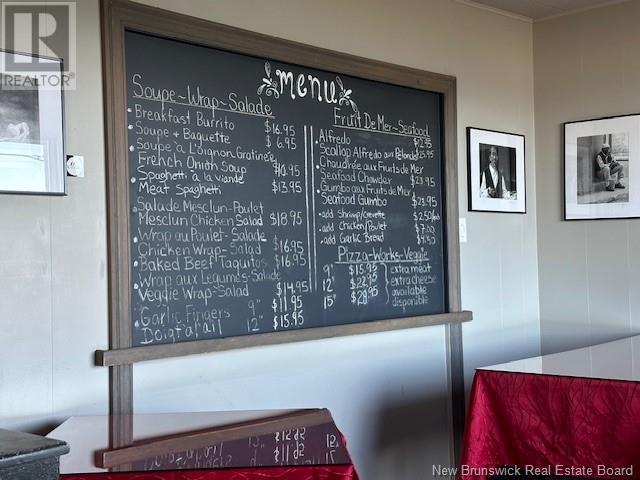 REALTOR®
menu
Soupe~Wrap~Salade
Breakfast Burrito $16.95
Soupe + Baguette $6.95
Soupe à L'oignon Gratinée
French Onion Soup $10.95
Spaghetti à la viande
Meat Spaghetti $13.95
Salade Mesclun-Poulet
Mesclun Chicken Salad $18.95
Wrap au Poulet-Salade
Chicken Wrap-Salad $16.95
Baked Beef Taquitos $16.95
Wrap aux Legumes-Salade
Veggie Wrap-Salad $14.95
Garlic Fingers 9" $11.95
Doigt à l'ail 12" $15.95
Fruit De Mer~Seafood
Alfredo
Scallop Alfredo aux Petoncles
Chaudrée aux Fruits de Mer
Seafood Chowder $23.95
Gumbo aux Fruits de Mer
Seafood Gumbo $23.95
add Shrimp/Crevette $2.50
add Chicken/Poulet
add Garlic Bread
Pizza~Works~Veggie
9" $15.95 extra meat
12" extra cheese
15" available
disponible
New Brunswick Real Estate Board